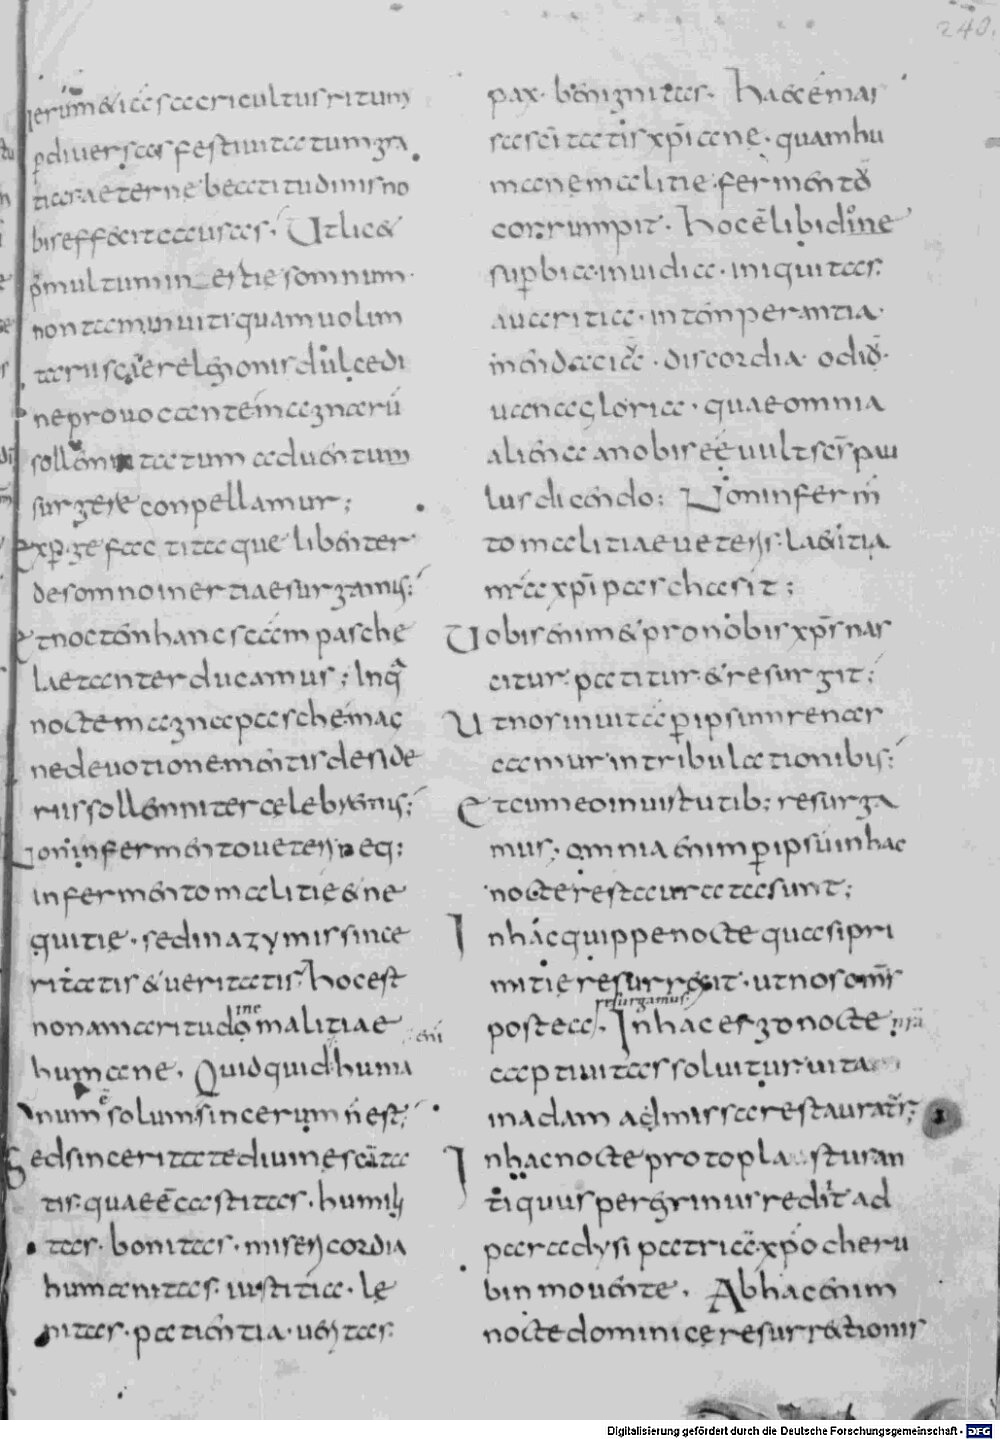 240.
ierūm & iħc sacri cultus ritum
ꝑ diuersas festiuitatum gra
tias aeterne beatitudinis no
bis efficit causas. Ut lic&
p̄multum inertie somnum
non tam inuiti quam uolun
tarii sermonis dulcedi
ne prouocante magnarū
sollemnitatum aduentum
surgere conpellamur;
Exꝑgefacti itaque libenter
de somno inertiae surgamus;
Et noctem hanc scām pasche
laetanter ducamus; Inq̄
nocte magna pasche magne
ne deuotione mentis deside
riis sollemniter celebremus;
Non in fermento ueteri neq;
in fermento malitię & ne
quitię. sed in azymis since
ritatis & ueritatis. Hoc est
non amaritudo malitiae
ine
humane. Quidquid huma
enī
num ē solum sincerum ñ est;
Sed sinceritate diuine scīta
tis. quae ē castitas. humili
tas. bonitas. misericordia
humanitas. iustitia. le
nitas. patientia. ueritas.
pax. benignitas. Haec é mas
sa scītatis xp̄iane. quam hu
mane malitie fermento
corrumpit. Hoc ē libidine
suꝑbia. inuidia. iniquitas.
auaritia. intemperantia.
mendacia. discordia. odio.
uana gloria. quae omnia
aliena a nobis eē uult scs̄ pau
lus dicendo: Non in fermen
to malitiae ueteris. laetitia
nr̄a xp̄i pascha sit;
Uobis enim & pro nobis xp̄s nas
citur. patitur. & resurgit;
Ut nos in uita ꝑ ipsum renas
camur in tribulationibus;
Et cum eo in uirtutib; resurga
mus. omnia enim ꝑ ipsū in hac
nocte restaurata sunt;
In hác quippe nocte quasi pri
mitię resurrexit. ut nos om̄s
resurgamus.
postea. In hac ergo nocte nr̄a
captiuitas soluitur. uita
in adam admissa restauratur;
In hac nocte protoplastus ran
tiquus peregrinus rediit ad
paradysi patria. xp̄o cheru
bin mouente. Ab hac enim
nocte dominice resurrectionis
Digitalisierung gefördert durch die Deutsche Forschungsgemeinschaft - DFG